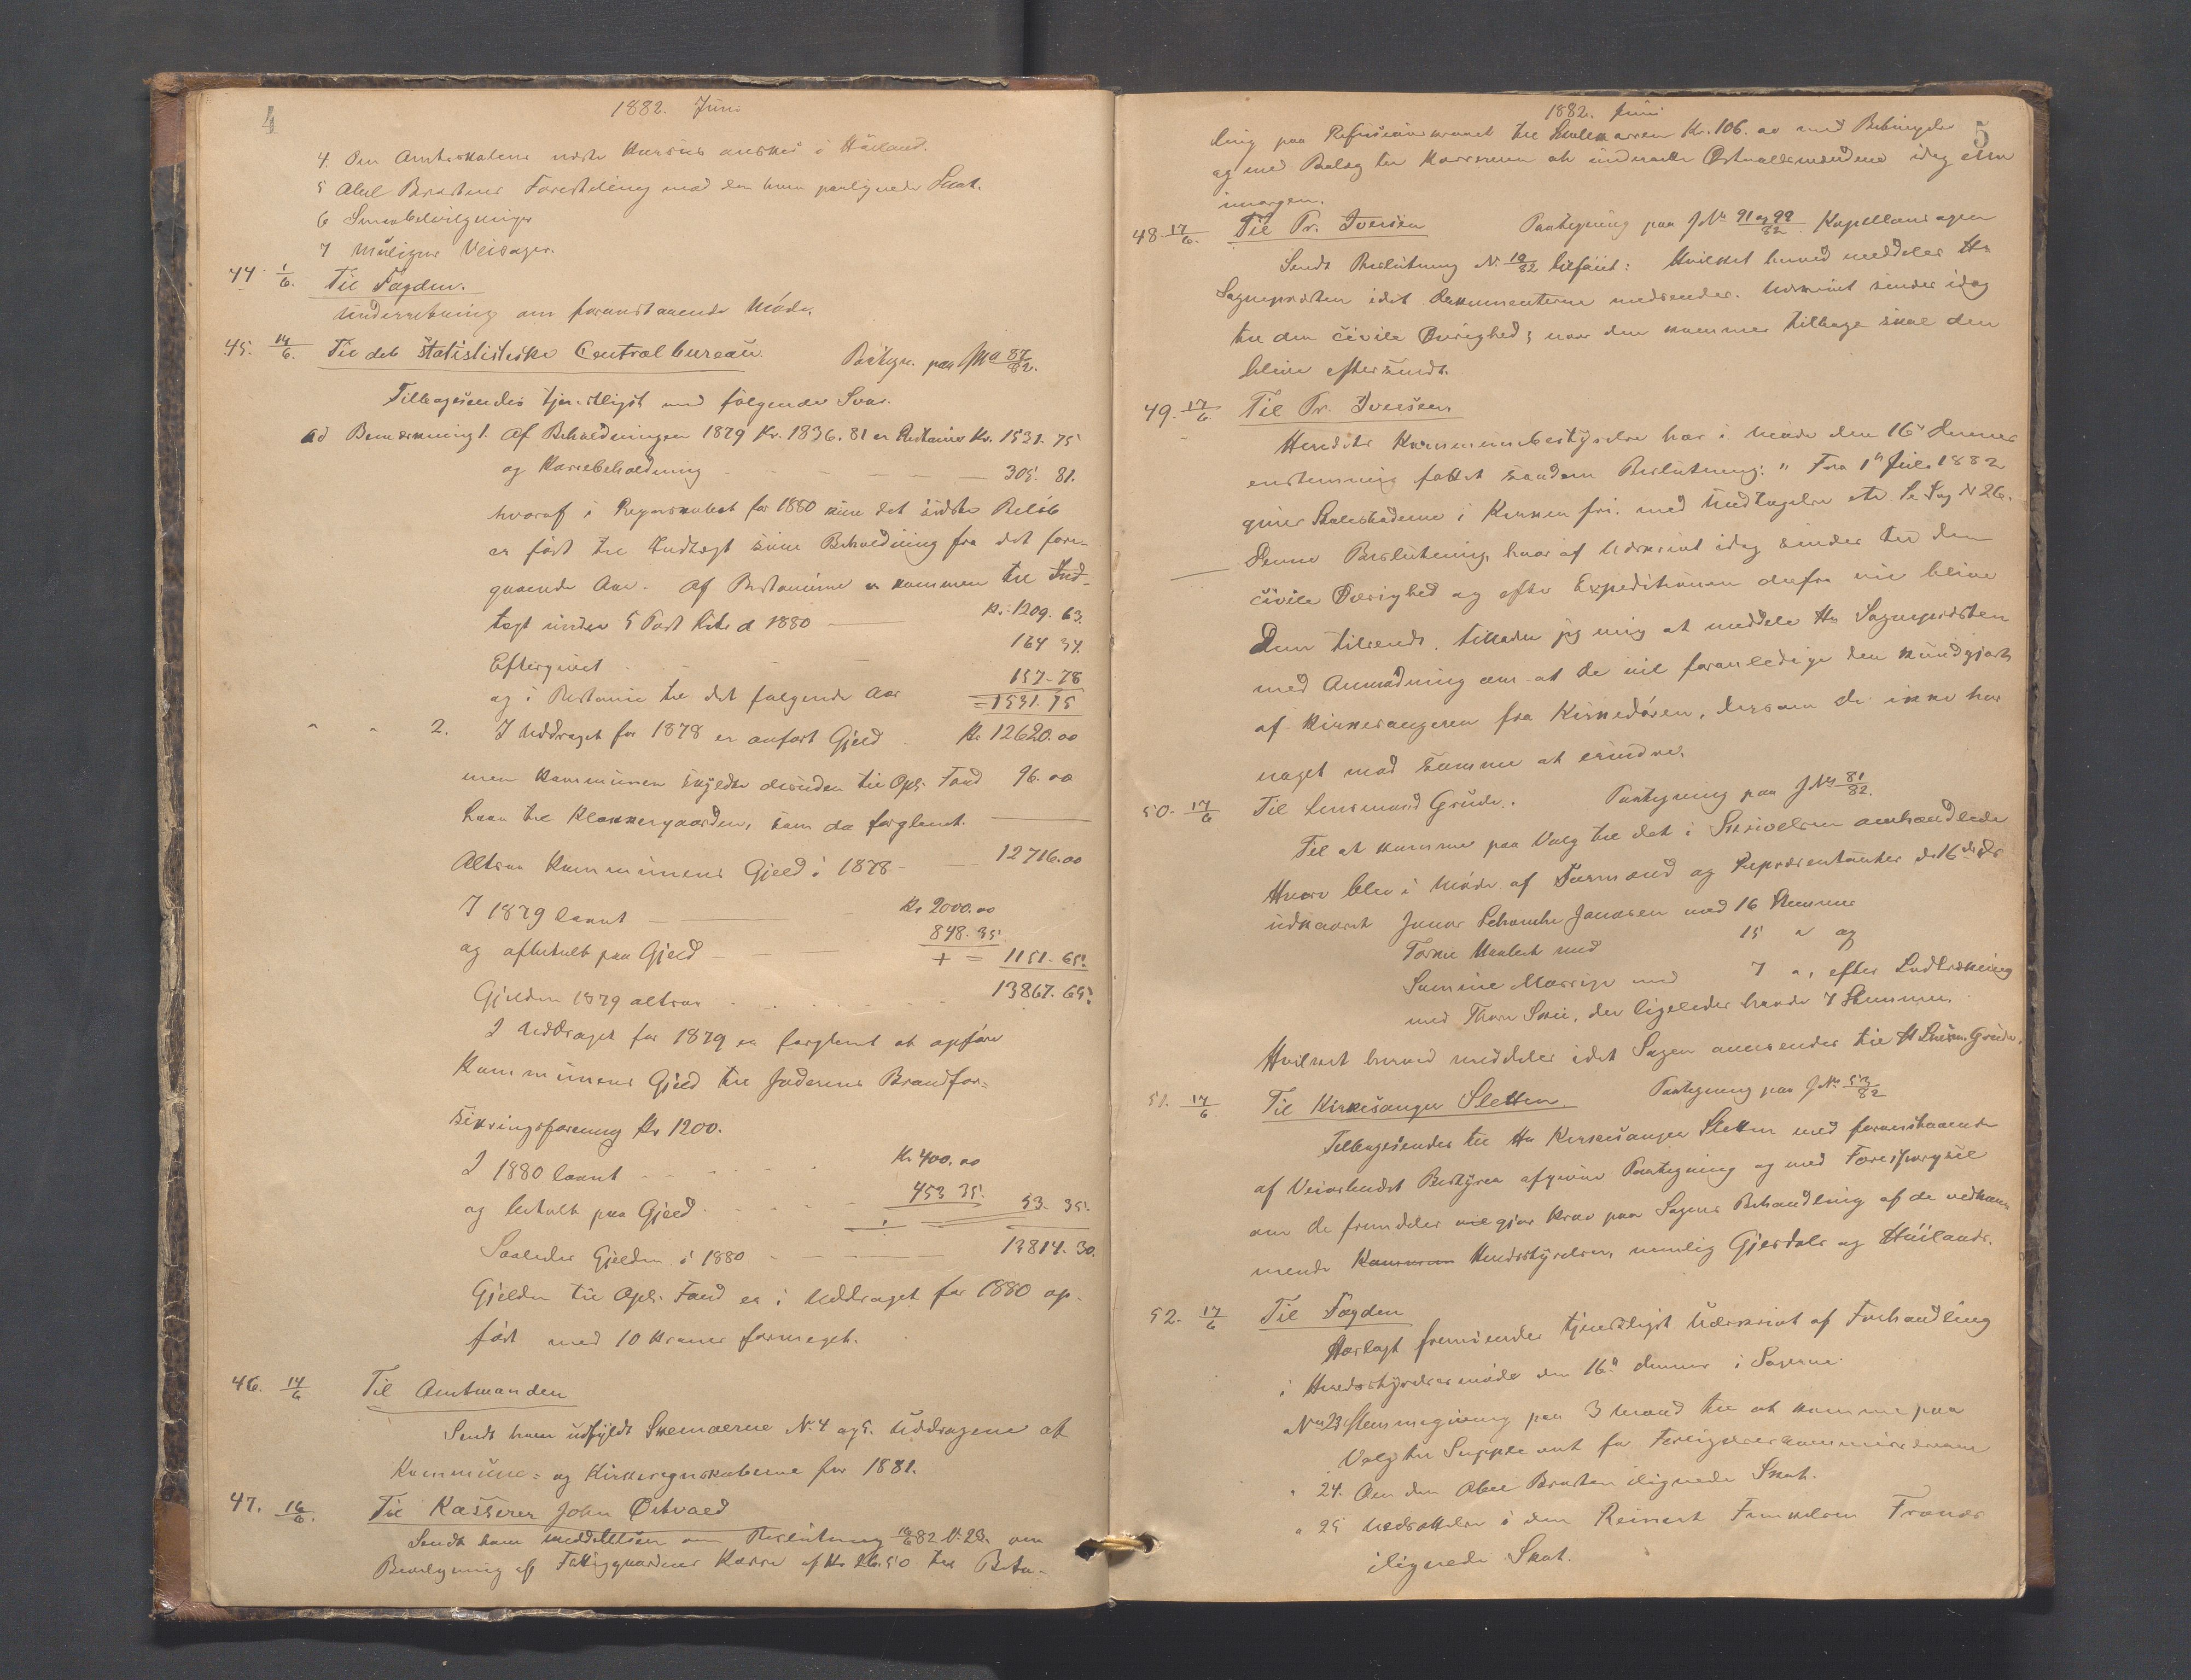 4
1882. Juni
4. Om Amtsskolens næste Kursus ønskes i Høiland.
5 Abel Braatens Forestilling mod den ham paalignede Skat.
6 Smaabevilgninger
7 Muligens Veisager.
44 1/6. Til Fogden.
Underretning om foranstaaende Møde.
45. 14/6. Til det statistiske Centralbureau. Paategn. paa JNo 87/82.
Tilbagesendes tjenstligst med følgende Svar.
ad Bemærkning 1. Af Beholdningen 1879 Kr. 1836.81 er Restancer Kr. 1531.75
og Kassebeholdning — 305.81.
hvoraf i Regnskabet for 1880 kun det sidste Beløb
er ført til Indtægt som Beholdning fra det fore-
gaaende Aar. Af Restancerne er kommen til Ind-
tægt under 5 Post Litr d 1880 — Kr. 1209.63.
Eftergivet 164 34.
og i Restance til det følgende Aar 157-78
= 1531.75
" " 2. I Uddraget for 1878 er anført Gjeld Kr 12620.00
men Kommunen skyldte desuden til Opl. Fond 96.00
Laan til Klokkergaarden, som da forglemt.
Altsaa Kommunens Gjeld i 1878 — 12716.00
I 1879 laant — Kr 2000.00
og afbetalt paa Gjeld — 848.35
+ = 1151.65.
Gjelden 1879 altsaa 13867.65.
I Uddraget for 1879 er forglemt at opføre
Kommunens Gjeld til Jæderens Brandfor-
sikringsforening Kr 1200.
I 1880 laant Kr. 400.00
og betalt paa Gjeld 453 35. 53.35.
Saaledes Gjelden i 1880 — 13814.30.
Gjelden til Opl. Fond er i Uddraget for 1880 op-
ført med 10 Kroner formeget.
46. 14/6 Til Amtmanden
Sendt ham udfyldt Skemaerne N. 4 og 5. Uddragene af
Kommune- og Kirkeregnskaberne for 1881.
47. 16/6. Til Kasserer John Østvold
Sendt ham Meddelelsen om Beslutning 16/6 82 N. 23. om
Bevilgning af Fattigvæsenets Kasse af Kr 26.50 til Beta-
5
1882. Juni
ling paa Refusionskravet til Kr. 106.00 med Betingelse
og med Paalæg til Kassereren at underrette idag eller
imorgen.
48. 17/6. Til Pr. Iversen Paategning paa JNo 91 og 99/82. Kapellansagen
Sendt Beslutning N. 19/82 tilføiet: Hvilket herved meddeles Hr
Sognepresten idet Dokumenterne medsendes. Udskrift sendes idag
til den civile Øvrighed; naar den kommer tilbage skal den
blive eftersendt.
49. 17/6 Til Pr. Iversen
Herreds Kommunebestyrelse har i Møde den 16de dennes
enstemmig fattet saadan Beslutning: "Fra 1ste Juli 1882
gives Stolestaderne i Kirken fri. med Undtagelse etc. Se Sag N 26.
Denne Beslutning, hvoraf Udskrift idag sendes til den
civile Øvrighed og efter Expeditionen derfra vil blive
Dem tilsendt, tillader jeg mig at meddele Hr Sognepresten
med Anmodning om at De vil foranledige den kundgjort
af Kirkesangeren fra Kirkedøren, dersom De ikke har
noget mod samme at erindre.
50. 17/6 Til Lensmand Grude. Paategning paa JNo 81/82.
Til at komme paa Valg til det i Skrivelsen omhandlede
Hverv blev i Møde af Formænd og Repræsentanter d. 16de ds
udkaaret Jonas Schanche Jonassen med 16 Stemmer
med 15 " og
med 7 ", efter Lodtrækning
med Thore Skei, der ligeledes havde 7 Stemmer.
Hvilket herved meddeles idet Sagen oversendes til H Lensm. Grude.
51. 17/6 Til Kirkesanger Sletten. Paategning paa JNo 53/82
Tilbagesendes til Hr Kirkesanger Sletten med foranstaaende
af Veivæsenets Bestyrer afgivne Paategning og med Forespørgsel
om de fremdeles gjør Krav paa Sagens Behandling af de vedkom-
mende Kommun Herredsstyrelser, nemlig Gjesdals og Høilands.
52. 17/6 Til Fogden
Vedlagt fremsendes tjenstligst Udskrift af Forhandling
i Herredsstyrelsesmøde den 16de dennes i Sagerne
No 23 Stemmegivning paa 3 Mænd til at komme paa
Valg til Suppleant for Forligelseskommissionen
" 24. Om den Abel Braaten ilignede Skat.
" 25 Nedsættelse i den Reinert Tronæs
ilignede Skat.